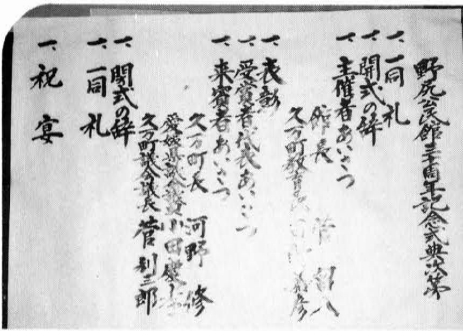 野尻公民館三十周年記念式典次第
一、一同礼
一、開式の辞
一、主催者あいさつ
館長 菅
久万町教育長
一、表彰
一、受賞者代表あいさつ
一、来賓者あいさつ
久万町長 河野 修
愛媛県議会議員 小田慶
久万町議会議長 菅 利三郎
一、閉式の辞
一、一同礼
一、祝宴